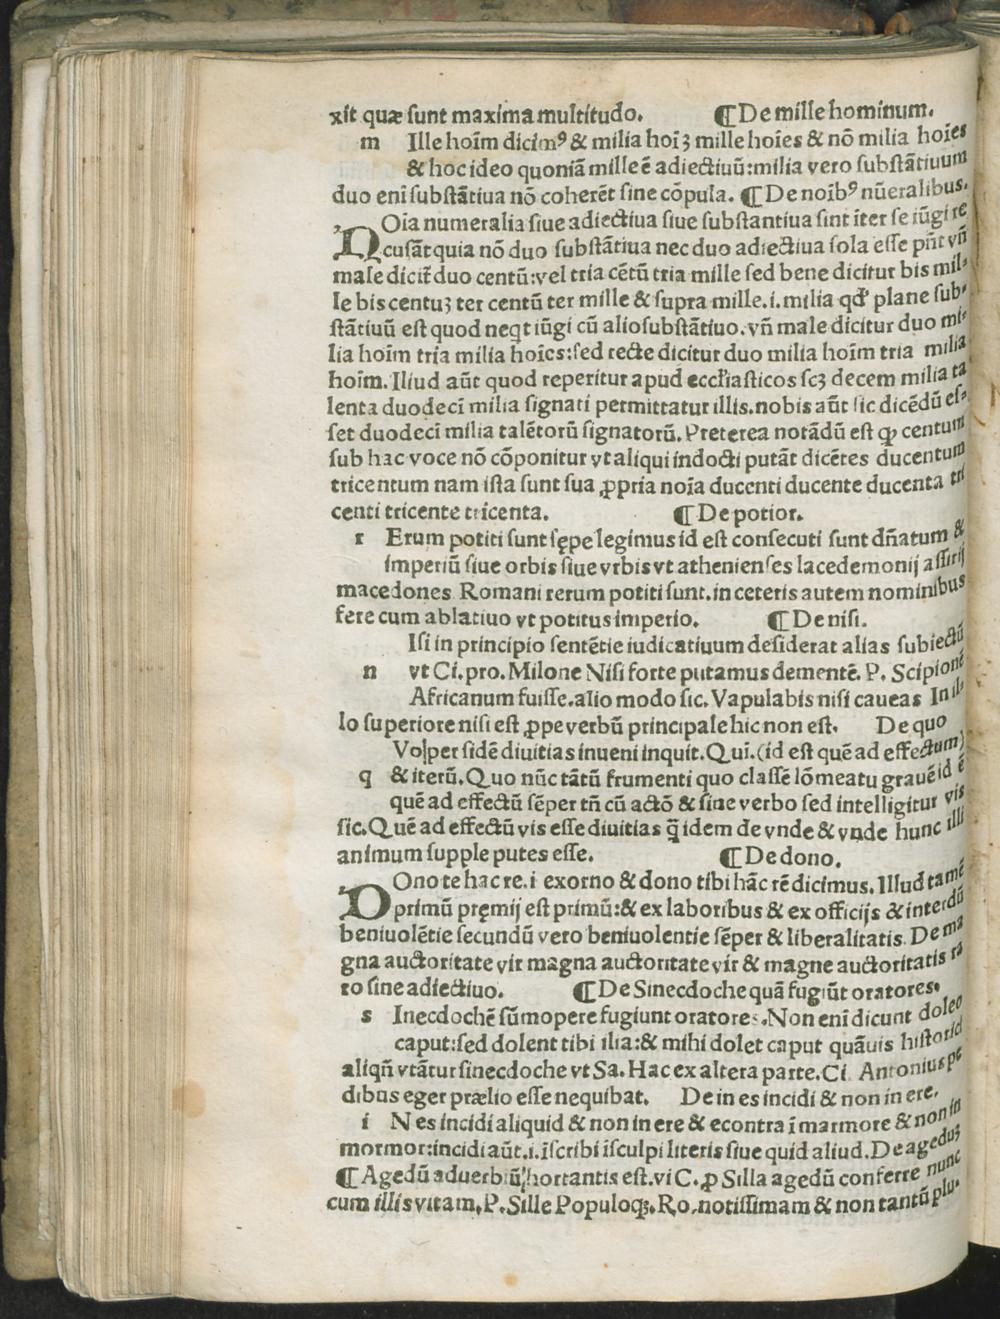 xit quæ sunt maxima multitudo. ¶De mille hominum.
m Ille hoīm dicimꝰ & milia hoīꝫ mille hoīes & nō milia hoīes
& hoc ideo quoniā mille ē adiectiuū:milia vero substātiuum
duo eni substātiua nō coherēt sine cōpula. ¶De noībꝰ nūeralibus.
Oīa numeralia siue adiectiua siue substantiua sint īter se iūgi re
cusāt quia nō duo substātiua nec duo adiectiua sola esse pñt vñ
male dicit̄ duo centū:vel tria cētū tria mille sed bene dicitur bis mil⸗
le bis centuꝫ ter centū ter mille & supra mille.i.milia qd' plane sub⸗
stātiuū est quod neqt iūgi cū alio substātiuo.vñ male dicitur duo mi⸗
lia hoīm tria milia hoīes:sed recte dicitur duo milia hoīm tria milia
hoīm. Illud aūt quod reperitur apud eccl'iasticos scꝫ decem milia ta
lenta duodecī milia signati permittatur illis.nobis aūt sic dicēdū es⸗
set duodecī milia talētorū signatorū. Preterea notādū est ꝙ centum
sub hac voce nō cōponitur vt aliqui indocti putāt dicētes ducentum
tricentum nam ista sunt sua ꝓpria noīa ducenti ducente ducenta tri
centi tricente tricenta. ¶De potior.
r Erum potiti sunt sępe legimus id est consecuti sunt dñatum &
imperiū siue orbis siue vrbis vt athenienses lacedemonij assirij
macedones Romani rerum potiti sunt.in ceteris autem nominibus
fere cum ablatiuo vt potitus imperio. ¶De nisi.
Isi in principio sentētie iudicatiuum desiderat alias subiectū
n vt Ci.pro.Milone Nisi forte putamus dementē. P. Scipionē
Africanum fuisse.alio modo sic.Vapulabis nisi caueas In il⸗
lo superiore nisi est ꝓpe verbū principale hic non est. De quo
Volper sidē diuitias inueni inquit.Quī.(id est quē ad effectum)
q & iterū.Quo nūc tātū frumenti quo classē lōmeatu grauē id ē
quē ad effectū sēper tñ cū actō & sine verbo sed intelligitur vis
sic.Quē ad effectū vis esse diuitias q̄ idem de vnde & vnde hunc illi
animum supple putes esse. ¶De dono.
DOno te hac re.i exorno & dono tibi hāc rē dicimus. Illud tamē
primū pręmij est primū:& ex laboribus & ex officijs & interdū
beniuolētie secundū vero beniuolentie sēper & liberalitatis. De ma
gna auctoritate vir magna auctoritate vir & magne auctoritatis ra
ro sine adiectiuo. ¶De Sinecdoche quā fugiūt oratores.
s Inecdochē sūmopere fugiunt oratores.Non enī dicunt doleo
caput:sed dolent tibi ilia:& mihi dolet caput quāuis historici
aliqñ vtātur sinecdoche vt Sa. Hac ex altera parte.Ci Antonius pe
dibus eger prælio esse nequibat. De in es incidi & non in ere.
i N es incidi aliquid & non in ere & econtra ī marmore & non in
mormor:incidi aūt.i.īscribi īsculpi literis siue quid aliud.De ageduꝫ
¶Agedū aduerbiū hortantis est.vi C.ꝓ Silla agedū conferre nunc
cum illis vitam.P.Sille Populoqꝫ.Ro.notissimam & non tantū plu⸗